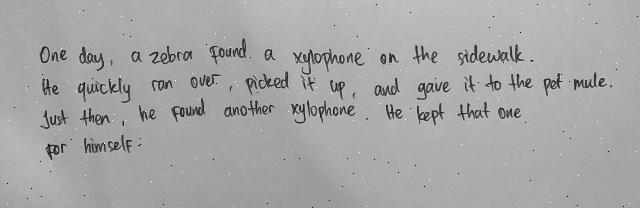 One day, a zebra found a xylophone on the sidewalk.
He quickly ran over, picked it up, and gave it to the pet mule.
Just then, he found another xylophone. He kept that one
for himself.